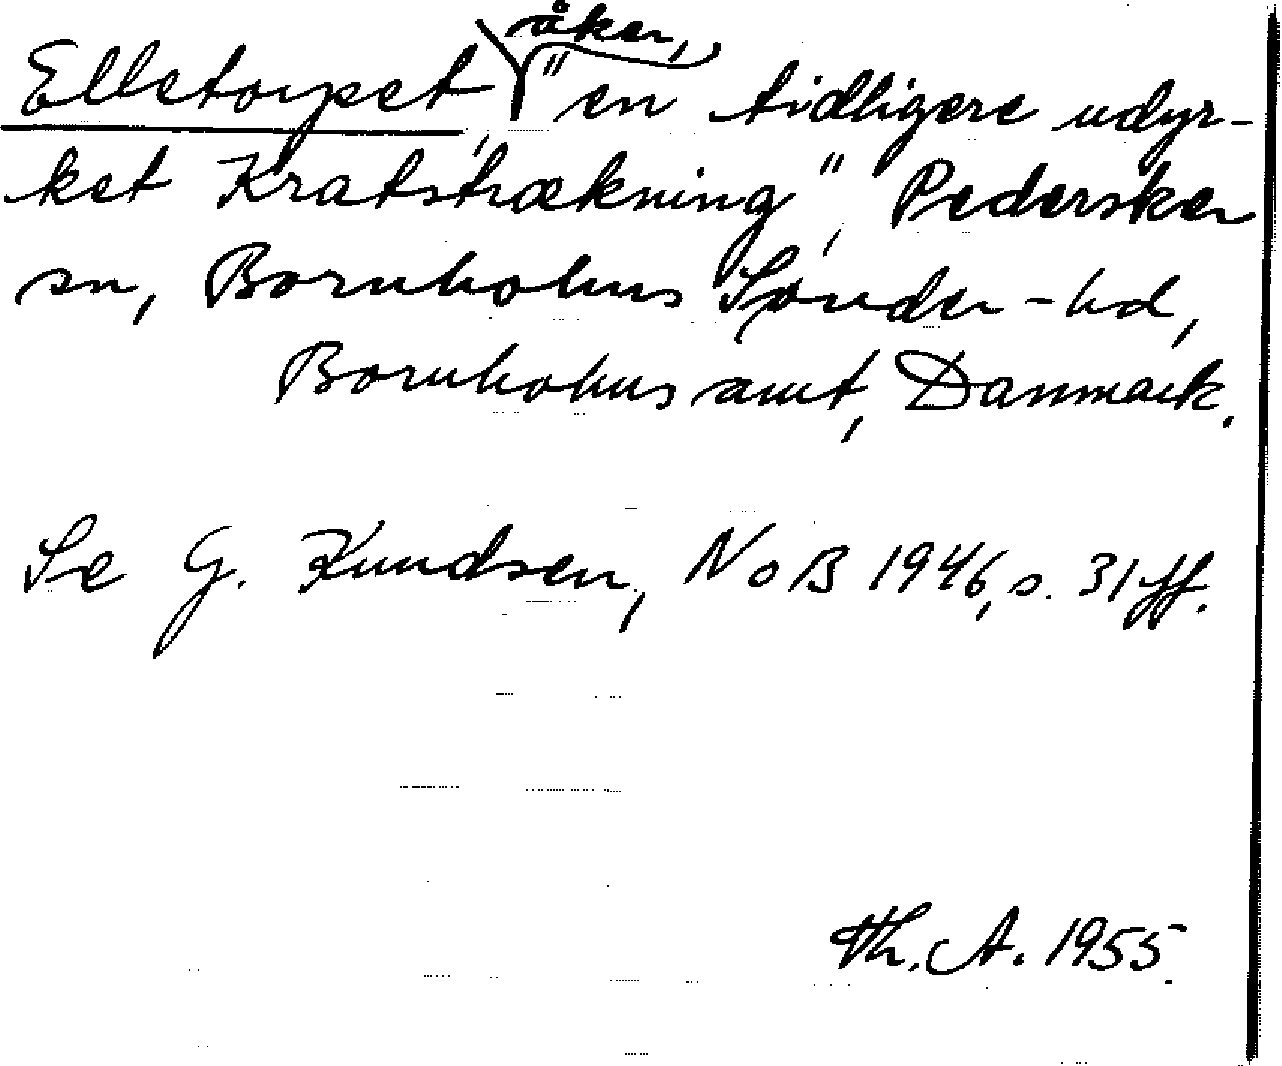 åker,
Elletorpet, "en tidligere udyr-
ket Kratstrækning", Pedersker
sn, Bornholms Sønder-hd,
Bornholms amt, Danmark.
Se G. Knudsen, NoB 1946, s. 31 ff.
Th. A. 1955.